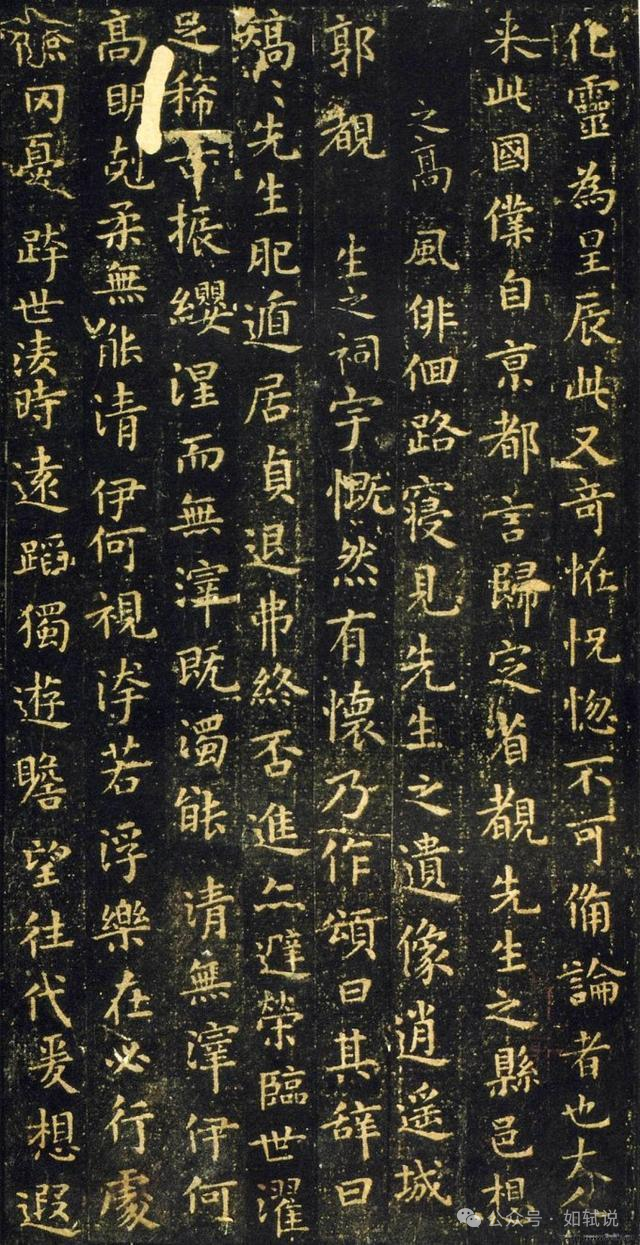 化靈為星辰此又竒恠怳惚不可俻論者也大人
来此國僕自京都言歸定省覩先生之縣邑想
之高風俳佪路寝見先生之遺像逍遥城
郭覩生之祠宇慨然有懷乃作頌曰其辞曰
矯〻先生肥遁居貞退弗終否進亦避榮臨世濯
足稀古振纓涅而無滓既濁能清無滓伊何
髙明剋柔無能清伊何視汙若浮樂在必行處
儉罔憂跨世淩時遠蹈獨遊瞻望往代爰想遐
公众号·如轼说